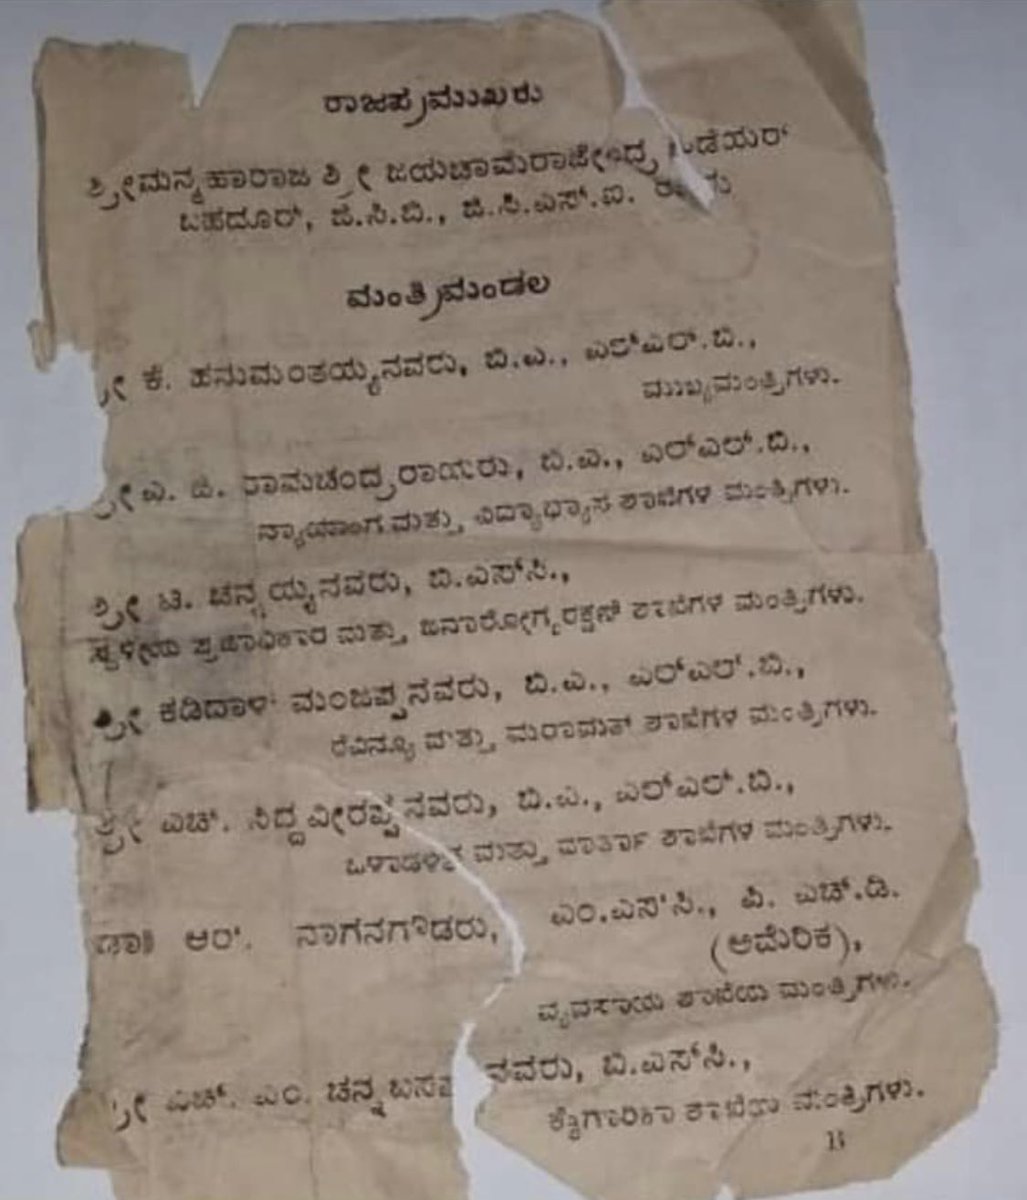 ರಾಜಪ್ರಮುಖರು
ಶ್ರೀಮನ್ಮಹಾರಾಜ ಶ್ರೀ ಜಯಚಾಮರಾಜೇಂದ್ರ ಒಡೆಯರ್
ಬಹದೂರ್, ಜಿ.ಸಿ.ಬಿ., ಜಿ.ಸಿ.ಎಸ್.ಐ.
ಮಂತ್ರಿಮಂಡಲ
ಶ್ರೀ ಕೆ. ಹನುಮಂತಯ್ಯನವರು, ಬಿ.ಎ., ಎಲ್‌ಎಲ್.ಬಿ.,
ಮುಖ್ಯಮಂತ್ರಿಗಳು.
ಶ್ರೀ ಎ. ಜಿ. ರಾಮಚಂದ್ರರಾಯರು, ಬಿ.ಎ., ಎಲ್‌ಎಲ್.ಬಿ.,
ನ್ಯಾಯಾಂಗ ಮತ್ತು ವಿದ್ಯಾಭ್ಯಾಸ ಶಾಖೆಗಳ ಮಂತ್ರಿಗಳು.
ಶ್ರೀ ಟಿ. ಚನ್ನಯ್ಯನವರು, ಬಿ.ಎಸ್‌ಸಿ.,
ಸ್ಥಳೀಯ ಪ್ರಜಾಧಿಕಾರ ಮತ್ತು ಜನಾರೋಗ್ಯರಕ್ಷಣೆ ಶಾಖೆಗಳ ಮಂತ್ರಿಗಳು.
ಶ್ರೀ ಕಡಿದಾಳ್ ಮಂಜಪ್ಪನವರು, ಬಿ.ಎ., ಎಲ್‌ಎಲ್.ಬಿ.,
ರೆವಿನ್ಯೂ ಮತ್ತು ಮರಾಮತ್ ಶಾಖೆಗಳ ಮಂತ್ರಿಗಳು.
ಶ್ರೀ ಎಚ್. ಸಿದ್ದವೀರಪ್ಪನವರು, ಬಿ.ಎ., ಎಲ್‌ಎಲ್.ಬಿ.,
ಒಳಾಡಳಿತ ಮತ್ತು ವಾರ್ತಾ ಶಾಖೆಗಳ ಮಂತ್ರಿಗಳು.
ಡಾ|| ಆರ್. ನಾಗನಗೌಡರು, ಎಂ.ಎಸ್‌ಸಿ., ಪಿ. ಎಚ್.ಡಿ.
(ಅಮೆರಿಕ),
ವ್ಯವಸಾಯ ಶಾಖೆಯ ಮಂತ್ರಿಗಳು.
ಶ್ರೀ ಎಚ್. ಎಂ. ಚನ್ನಬಸಪ್ಪನವರು, ಬಿ.ಎಸ್‌ಸಿ.,
ಕೈಗಾರಿಕಾ ಶಾಖೆಯ ಮಂತ್ರಿಗಳು.